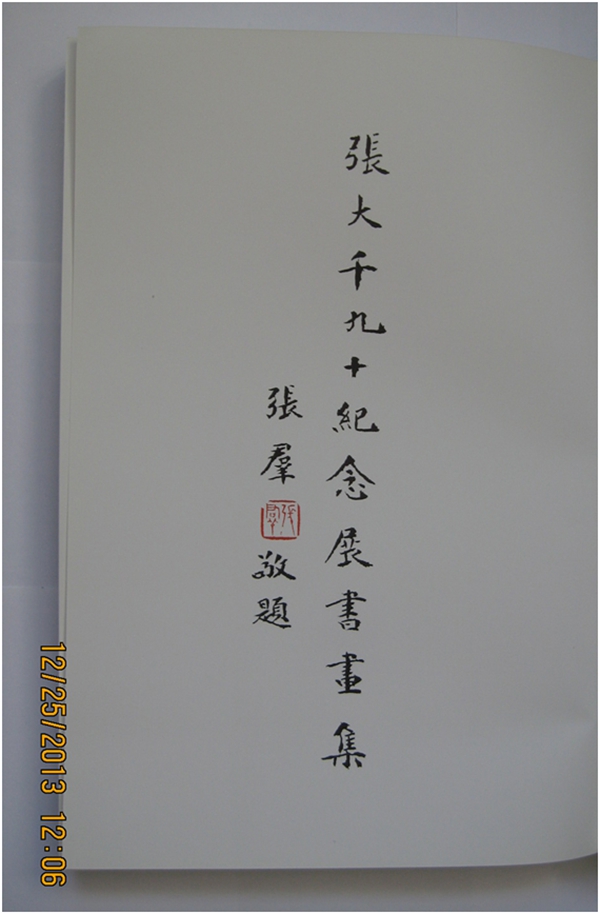 張大千九十紀念展書畫集
張羣
張羣
敬題
12/25/2013 12:06